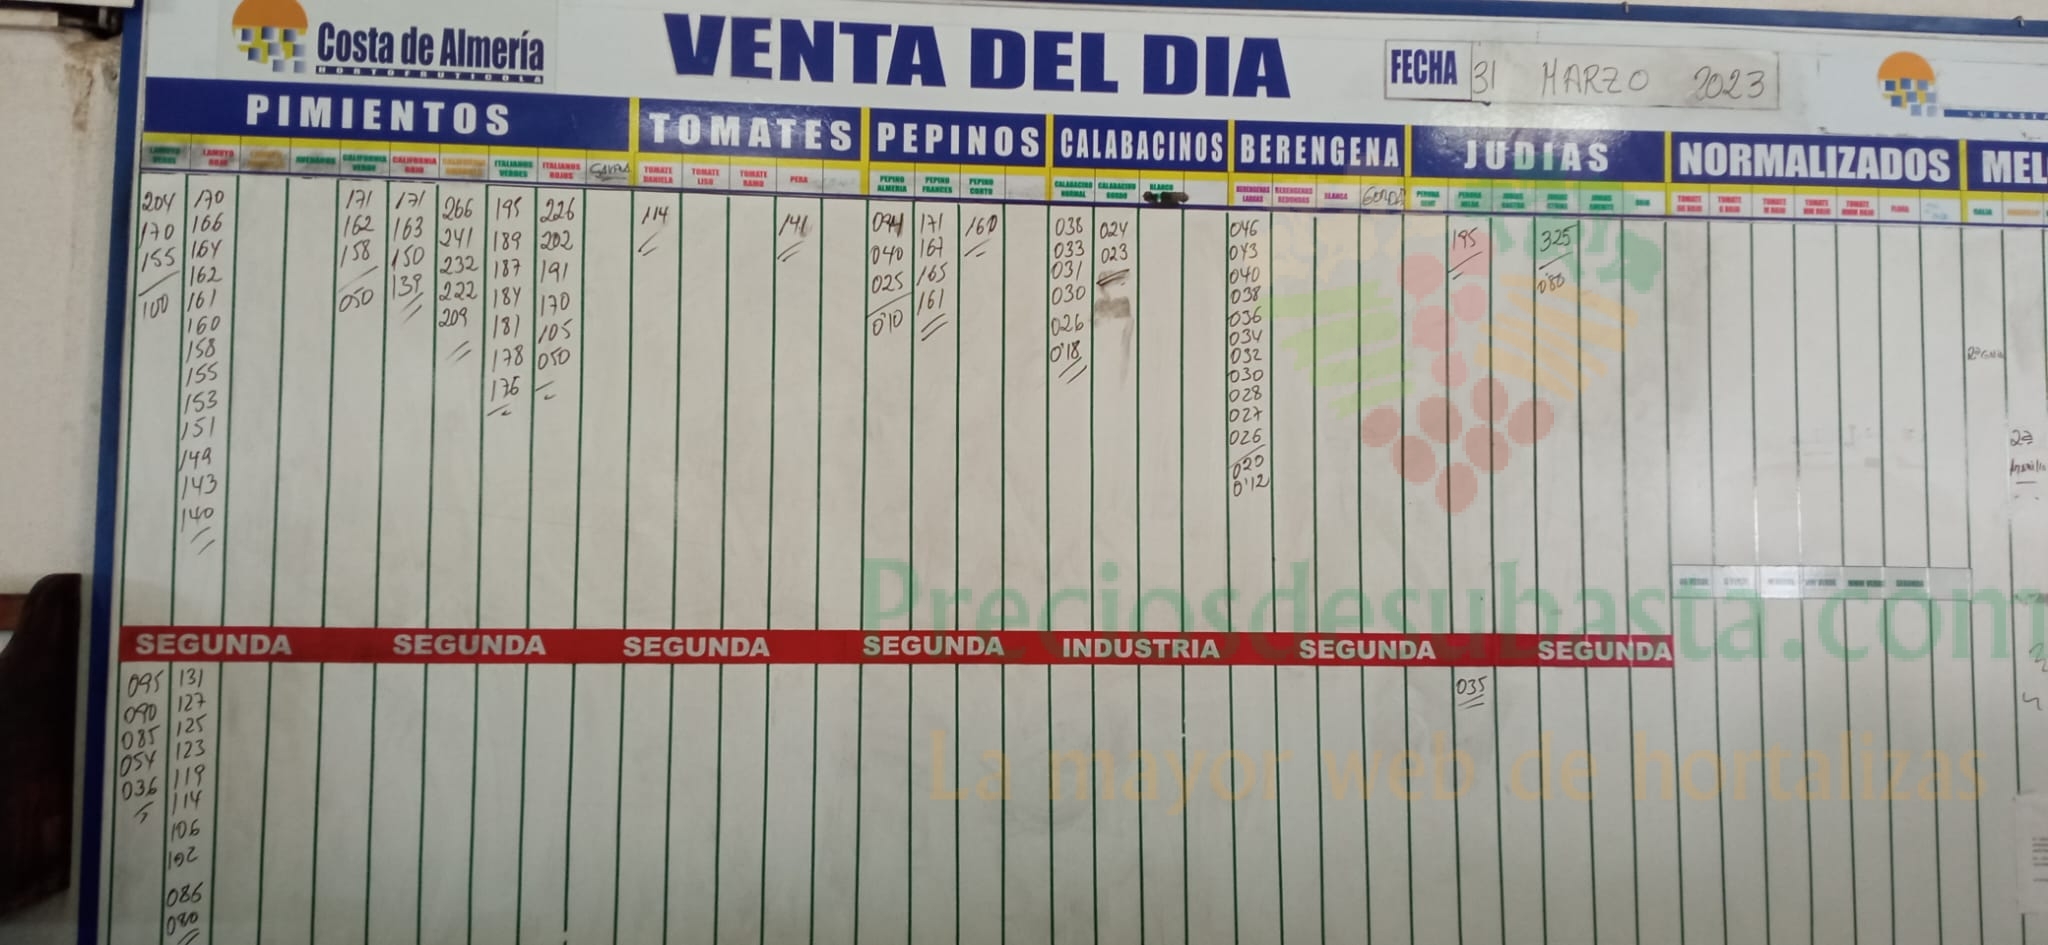 Costa de Almería
HORTOFRUTICOLA
VENTA DEL DIA
FECHA 31 MARZO 2023
SUBASTA
PIMIENTOS
LAMUYO VERDE
204
170
155
100
LAMUYO ROJO
170
166
164
162
161
160
158
155
153
151
149
143
140
CALIFORNIA VERDE
171
162
158
050
CALIFORNIA ROJO
171
163
150
139
266
241
232
222
209
ITALIANOS VERDES
195
189
187
184
181
178
176
ITALIANOS ROJOS
226
202
191
170
105
050
TOMATES
TOMATE DANIELA
114
TOMATE LISO
TOMATE RAMO
PERA
141
PEPINOS
PEPINO ALMERIA
094
040
025
0'10
PEPINO FRANCES
171
167
165
161
PEPINO CORTO
160
CALABACINOS
CALABACINO NORMAL
038
033
031
030
026
0'18
CALABACINO GORDO
024
023
BLANCO
BERENGENA
BERENGENAS LARGAS
046
043
040
038
036
034
032
030
028
027
026
020
0'12
BERENGENAS REDONDAS
BLANCA
GORDA
JUDIAS
195
325
0'80
NORMALIZADOS
MEL
GALIA
2ª
SEGUNDA SEGUNDA SEGUNDA SEGUNDA INDUSTRIA SEGUNDA SEGUNDA
095
090
085
054
036
131
127
125
123
119
114
106
102
086
080
035
Preciosdesubasta.com
La mayor web de hortalizas